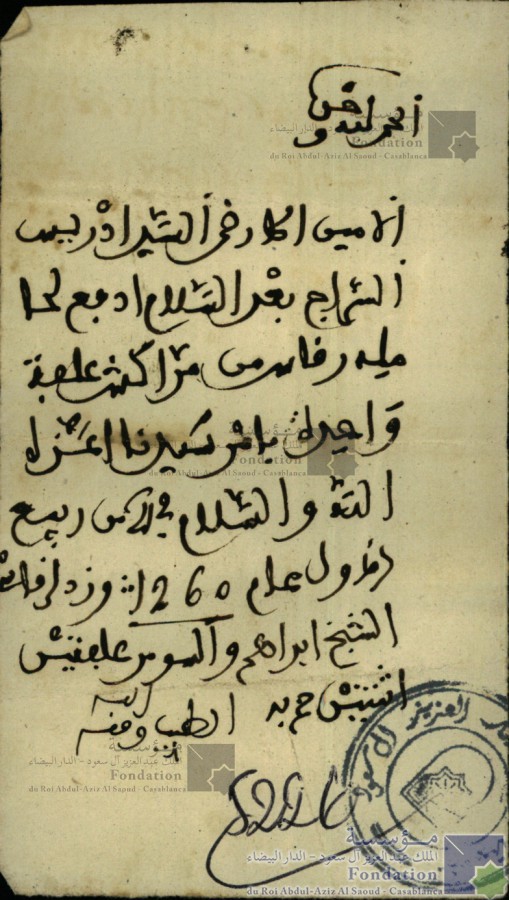 الحمد لله وحده
الامين الارضى السيد ادريس
السراج بعد السلام ادفع لحا
مله رقاس من مراكش علفة
واحدة بامر سيدنا اعزه
الله والسلام في من ربيع
الاول عام 1260 وزد لرقاس
الشيخ ابراهيم والسوس علفتين
اثنتين
الطيب وفقه الله
مؤسسة
الملك عبدالعزيز آل سعود - الدار البيضاء
Fondation
du Roi Abdul-Aziz Al Saoud - Casablanca